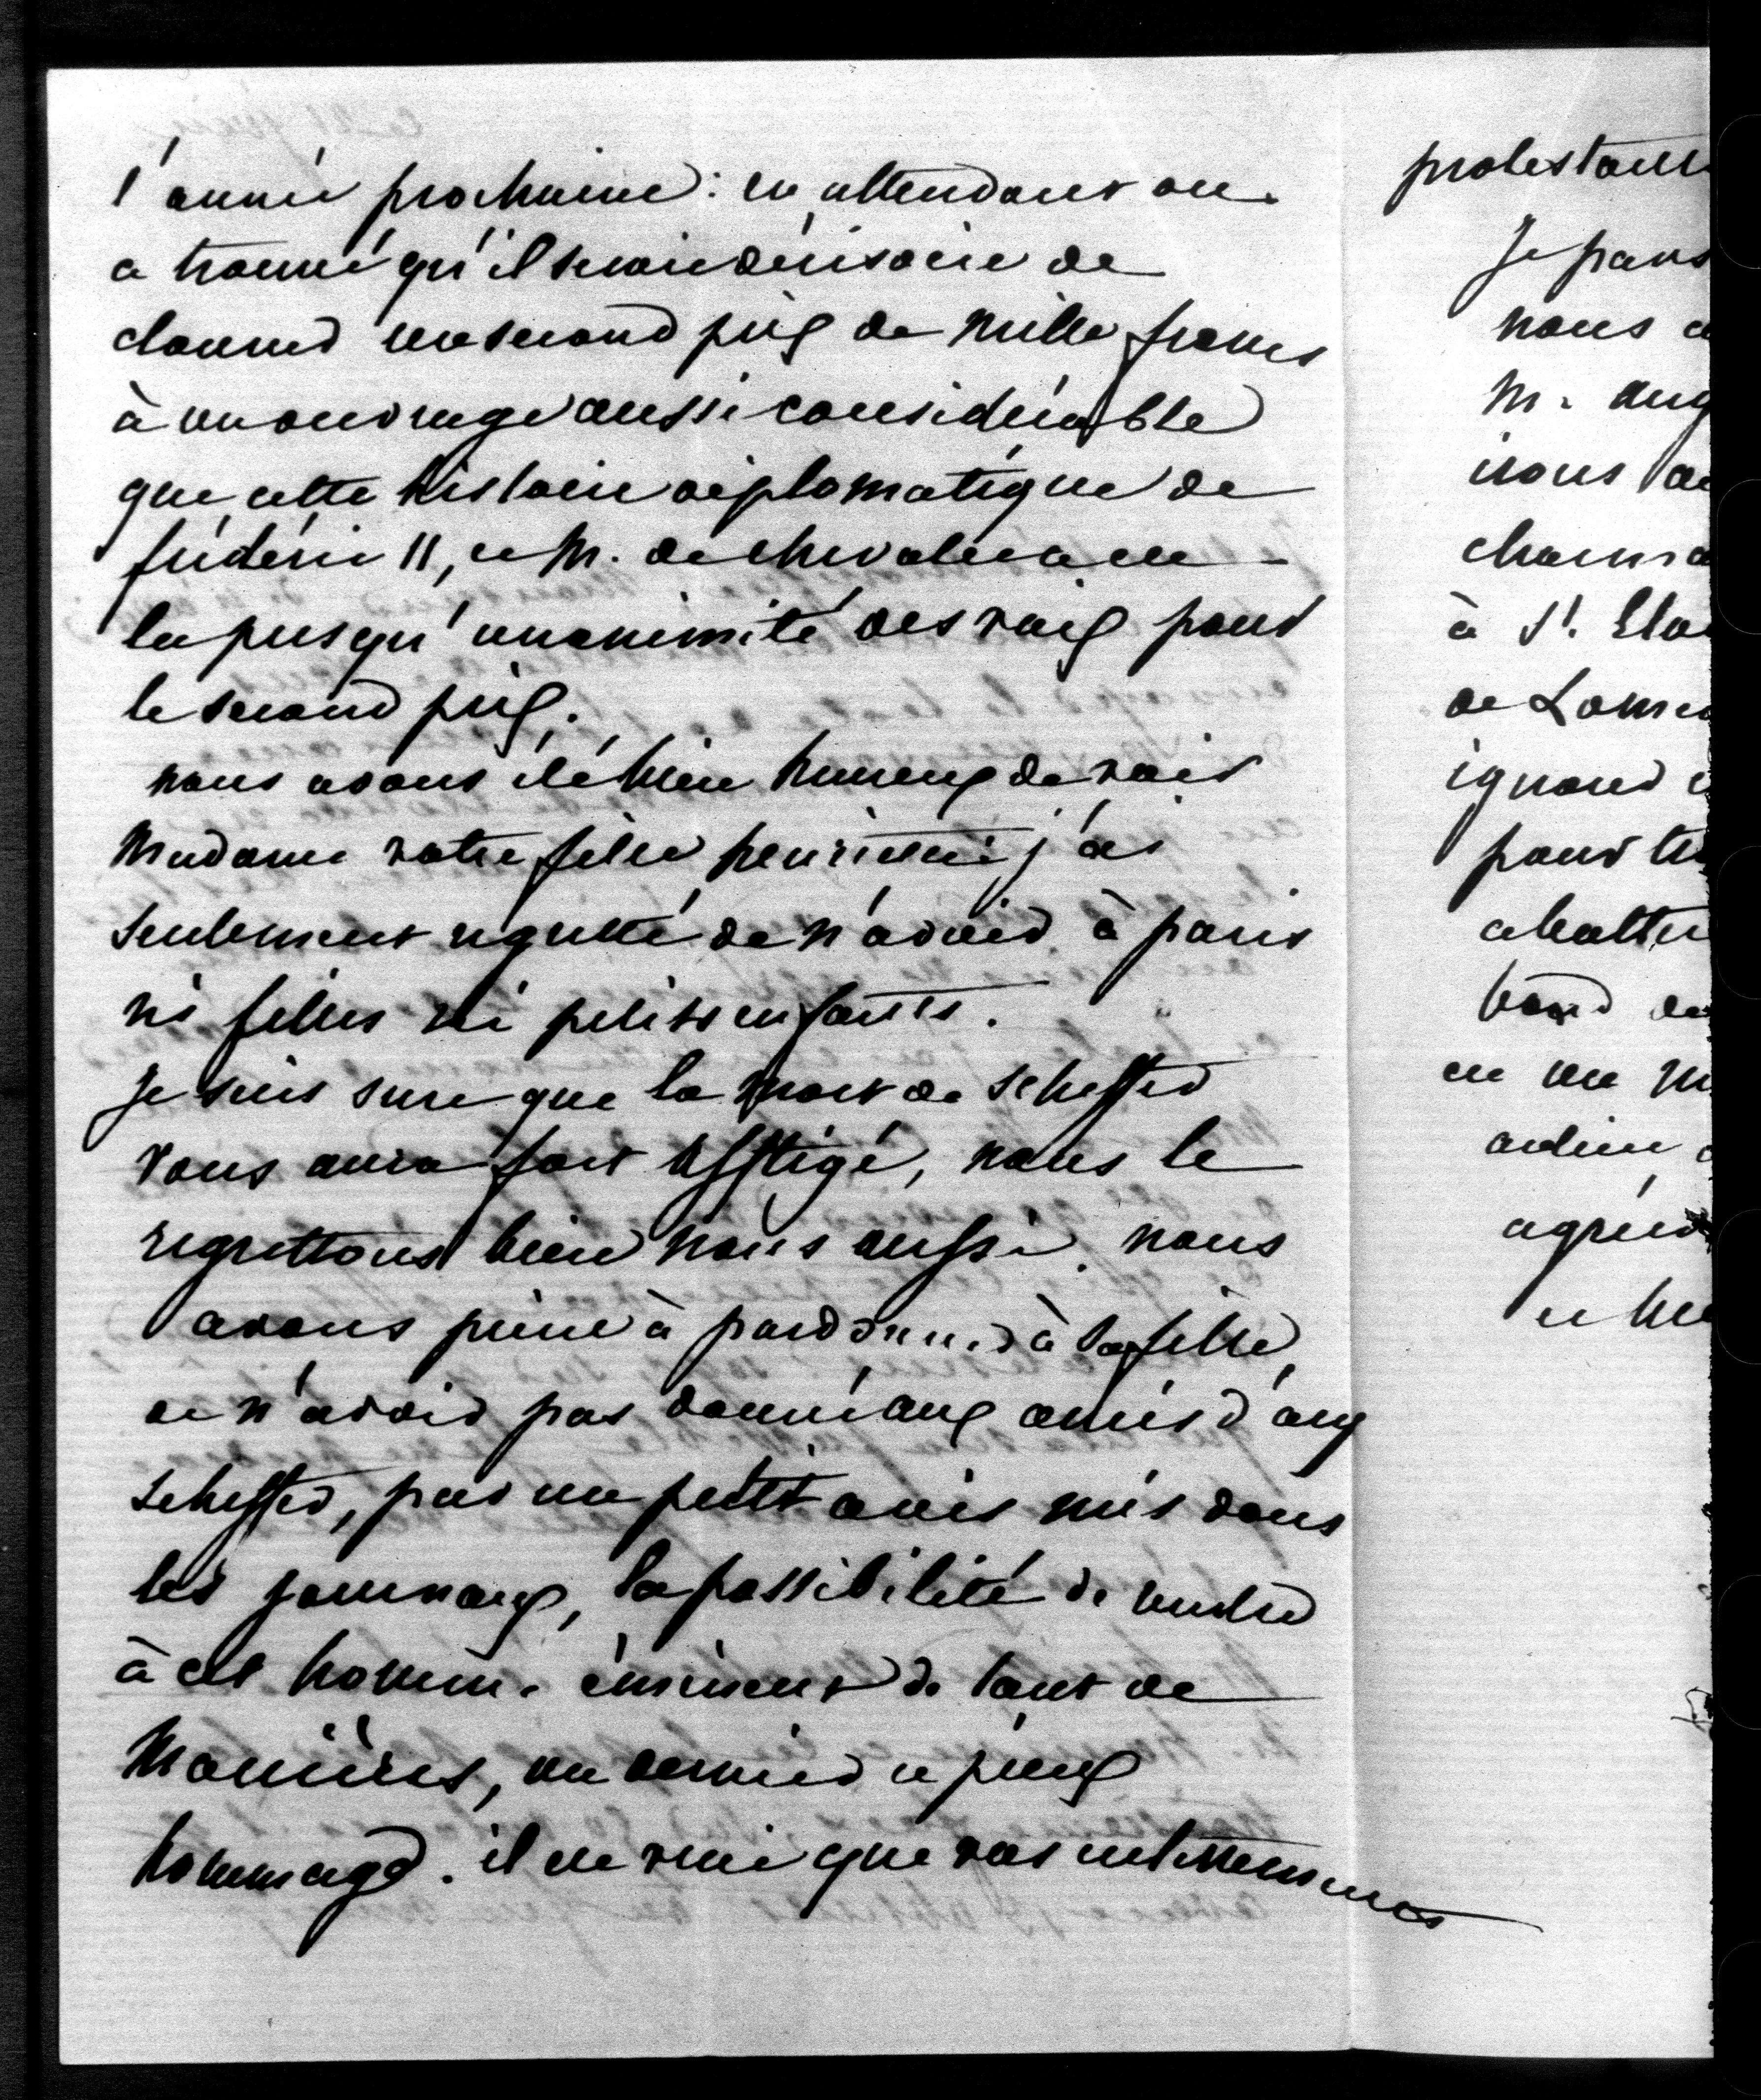 l'année prochaine : en attendant on
a trouvé qu'il serait dérisoire de
donner un second prix de mille francs
à un ouvrage aussi considérable
que cette histoire diplomatique de
frédéric II, et M. de cherrier a eu
la presqu'unanimité des voix pour
le second prix.
nous avons été bien heureux de voir
Madame votre fille henriette j'ai
seulement regretté de n'avoir à paris
ni filles ni petits enfants.
Je suis sure que la mort de Scheffer
vous aura fort affligé, nous le
regrettons bien nous aussi. nous
avons peine à pardonner à sa fille,
de n'avoir pas donné aux amis d'ary
scheffer, par un petit avis mis dans
les journaux, la possibilité de rendre
à cet homme éminent de tant de
manières, un dernier et pieux
hommage. il est vrai que vos
protestants
Je pars
nous
M. aug
irons
à St. Elo
de Lomé
ignore
pour
abattu
bord de
en un m
adieu
agréez